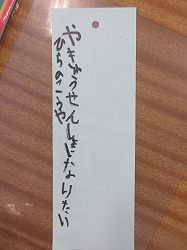 やきゅうせんしゅになりたい
ひらのこうや